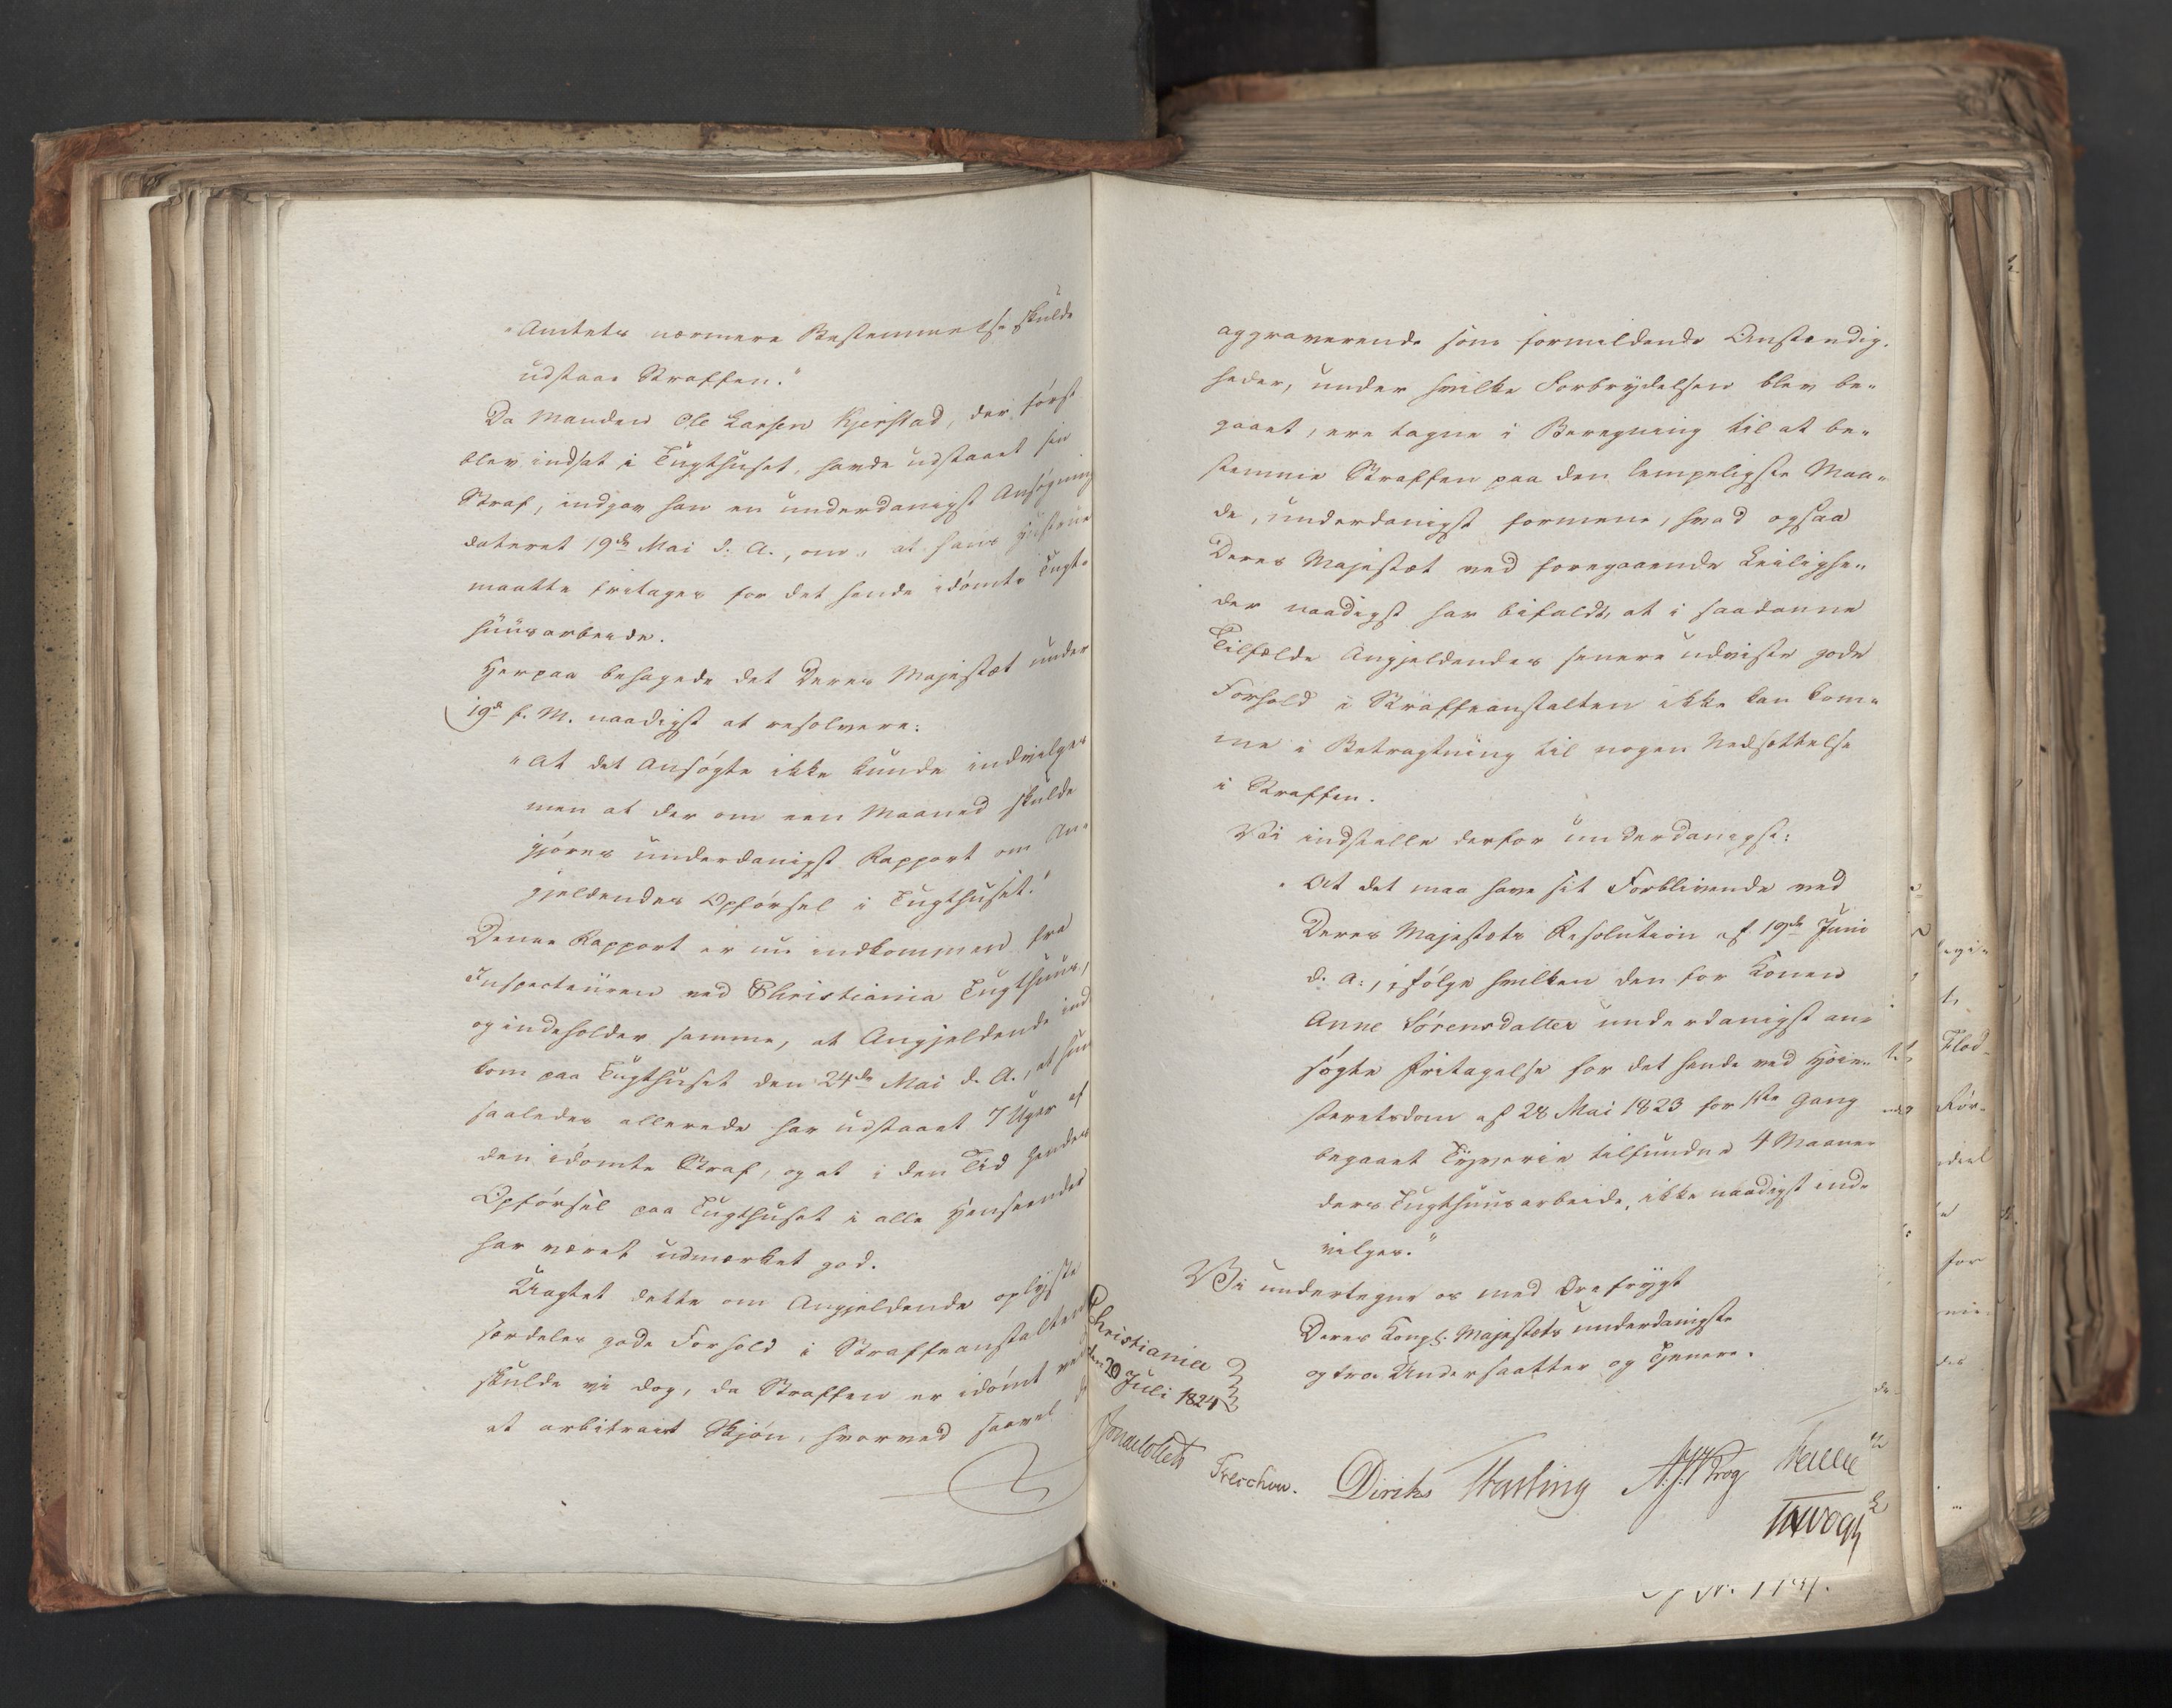 "Amtets nærmere Bestemmelse skulde
udstaae Straffen."
Da Manden Ole Larsen Kjerstad, der først
blev indsat i Tugthuset, havde udstaaet sin
Straf, indgav han en underdanigst Ansøgning
dateret 19de Mai d. A., om, at hans Hustrue
maatte fritages for det hende idømte Tugt-
huusarbeide.
Herpaa behagede det Deres Majestæt under
19de f. M. naadigst at resolvere:
"At det Ansøgte ikke kunde indvilges
men at der om een Maaned skulde
gjøres underdanigst Rapport om An-
gjeldendes Opførsel i Tugthuset."
Denne Rapport er nu indkommen fra
Inspecteuren ved Christiania Tugthuus,
og indeholder samme, at Angjeldende ind
kom paa Tugthuset den 24de Mai d. A., at hun
saaledes allerede har udstaaet 7 Uger af
den idømte Straf, og at i den Tid hendes
Opførsel paa Tugthuset i alle Henseender
har været udmærket god.
Uagtet dette om Angjeldende oplyste
særdeles gode Forhold i Straffeanstalten
skulde vi dog, da Straffen er idømt ved
et arbitrairt Skjøn, hvorved saavel
aggraverende som formildende Omstændig-
heder, under hvilke Forbrydelsen blev be-
gaaet, ere tagne i Beregning til at be-
stemme Straffen paa den lempeligste Maa-
de, underdanigst formene, hvad ogsaa
Deres Majestæt ved foregaaende Leilighe-
der naadigst har bifaldt, at i saadanne
Tilfælde Angjeldendes senere udviste gode
Forhold i Straffeanstalten ikke kan kom-
me i Betragtning til nogen Nedsættelse
i Straffen.
Vi indstille derfor underdanigst:
"At det maa have sit Forblivende ved
Deres Majestæts Resolution af 19de Juni
d. A., ifølge hvilken den for Konen
Anne Sørensdatter underdanigst an-
søgte Fritagelse for det hende ved Høie-
steretsdom af 28 Mai 1823 for 1ste Gang
begaaet Tyverie tilfundne 4 Maane-
ders Tugthuusarbeide, ikke naadigst ind-
vilges."
Vi undertegne os med Ærefrygt
Deres Kongl. Majestæts underdanigste
og troe Undersaatter og Tjenere.
Christiania
den 20 Juli 1824
Jonas Collett Treschow. Diriks Hasting A. J. Krog Fasting